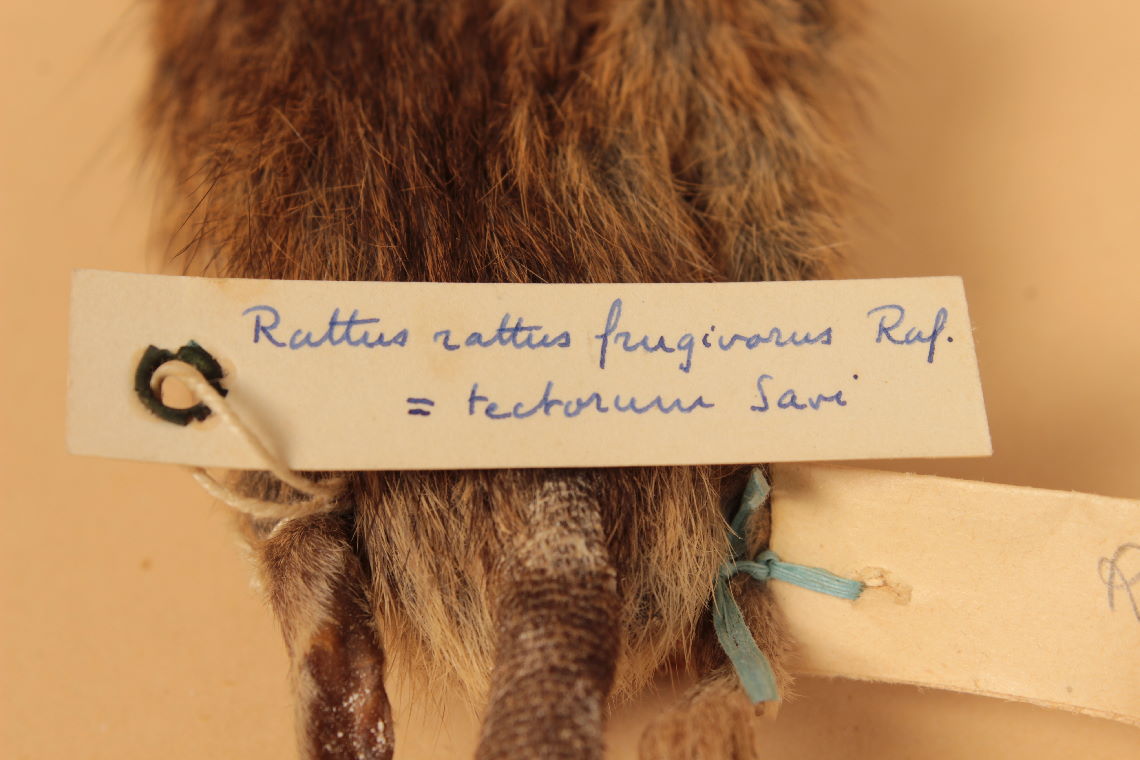 Rattus rattus frugivorus Raf.
= tectorum Savi
R